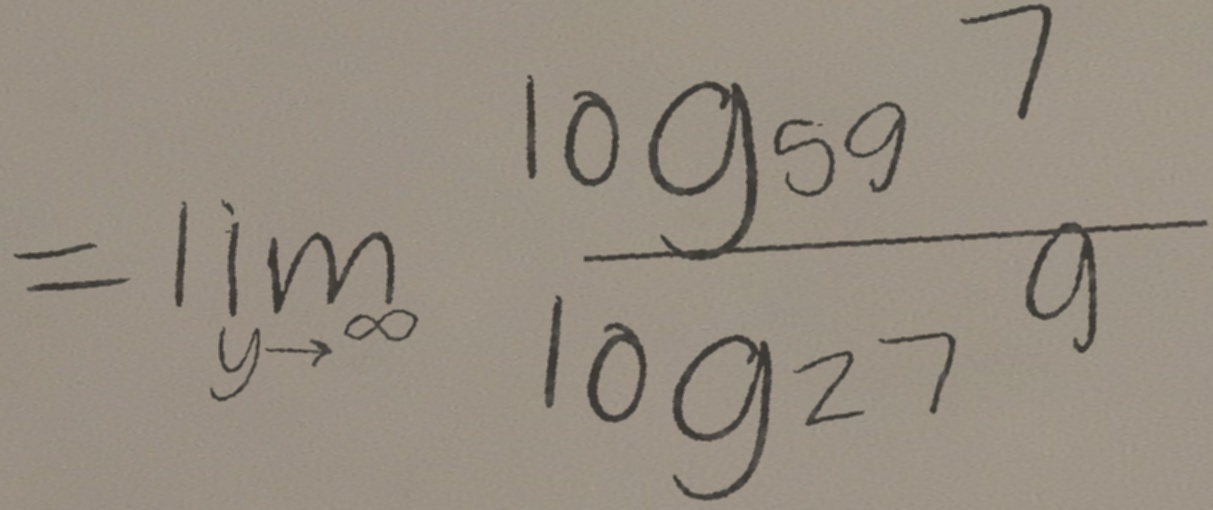 = lim y→∞ log₅₉ 7 / log₂₇ 9